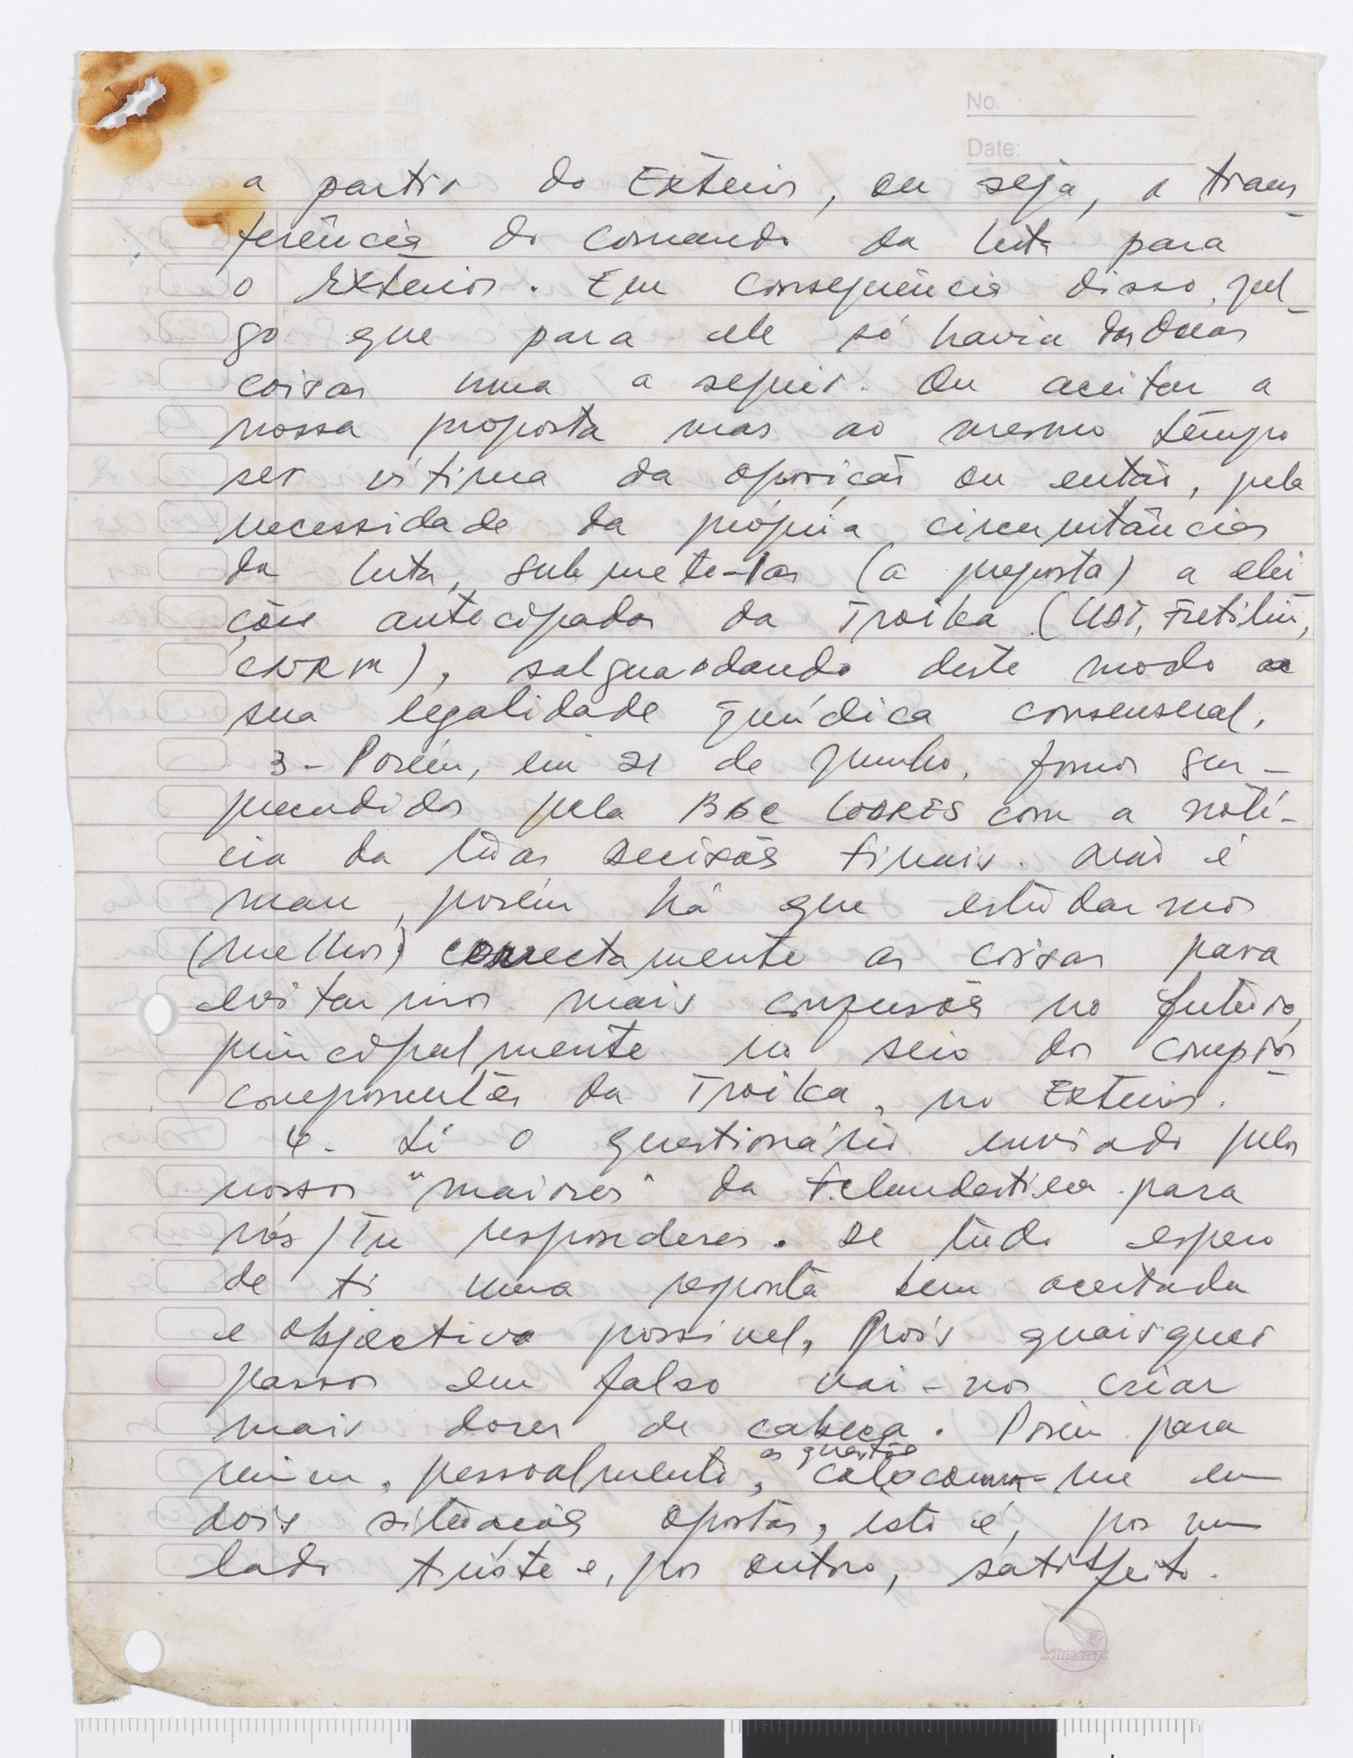 No.
Date:
a partir do Exterior, ou seja, a trans-
ferência do comando da luta para
o Exterior. Em consequência disso, jul-
go que para ele só havia das duas
coisas uma a seguir. Ou aceitar a
nossa proposta mas ao mesmo tempo
ser vítima da oposição ou então, pela
necessidade da própria circunstâncias
da luta, submete-las (a proposta) a elei
ções antecipadas da Troika (UDT, Fretilin,
CNRM), salguardando deste modo a
sua legalidade jurídica consensual.
3- Porém, em 21 de Junho, fomos sur-
preendidos pela BBC LODRES com a notí-
cia da tuas decisões finais. Não é
mau, porém há que estudarmos
(melhor) correctamente as coisas para
evitarmos mais confusões no futuro,
principalmente no seio dos
componentes da Troika, no Exterior.
4- Li o questionário enviado pelos
nossos "maiores" da F.Clandestina para
nós/Tu responderes. De tudo espero
de ti uma resposta bem acertada
e objectiva possivel, pois quaisquer
passos em falso vai-nos criar
mais dores de cabeça. Porém para
mim, pessoalmente, as questões colocam-me em
dois situações opostas, isto é, por um
lado triste e, por outro, satisfeito.